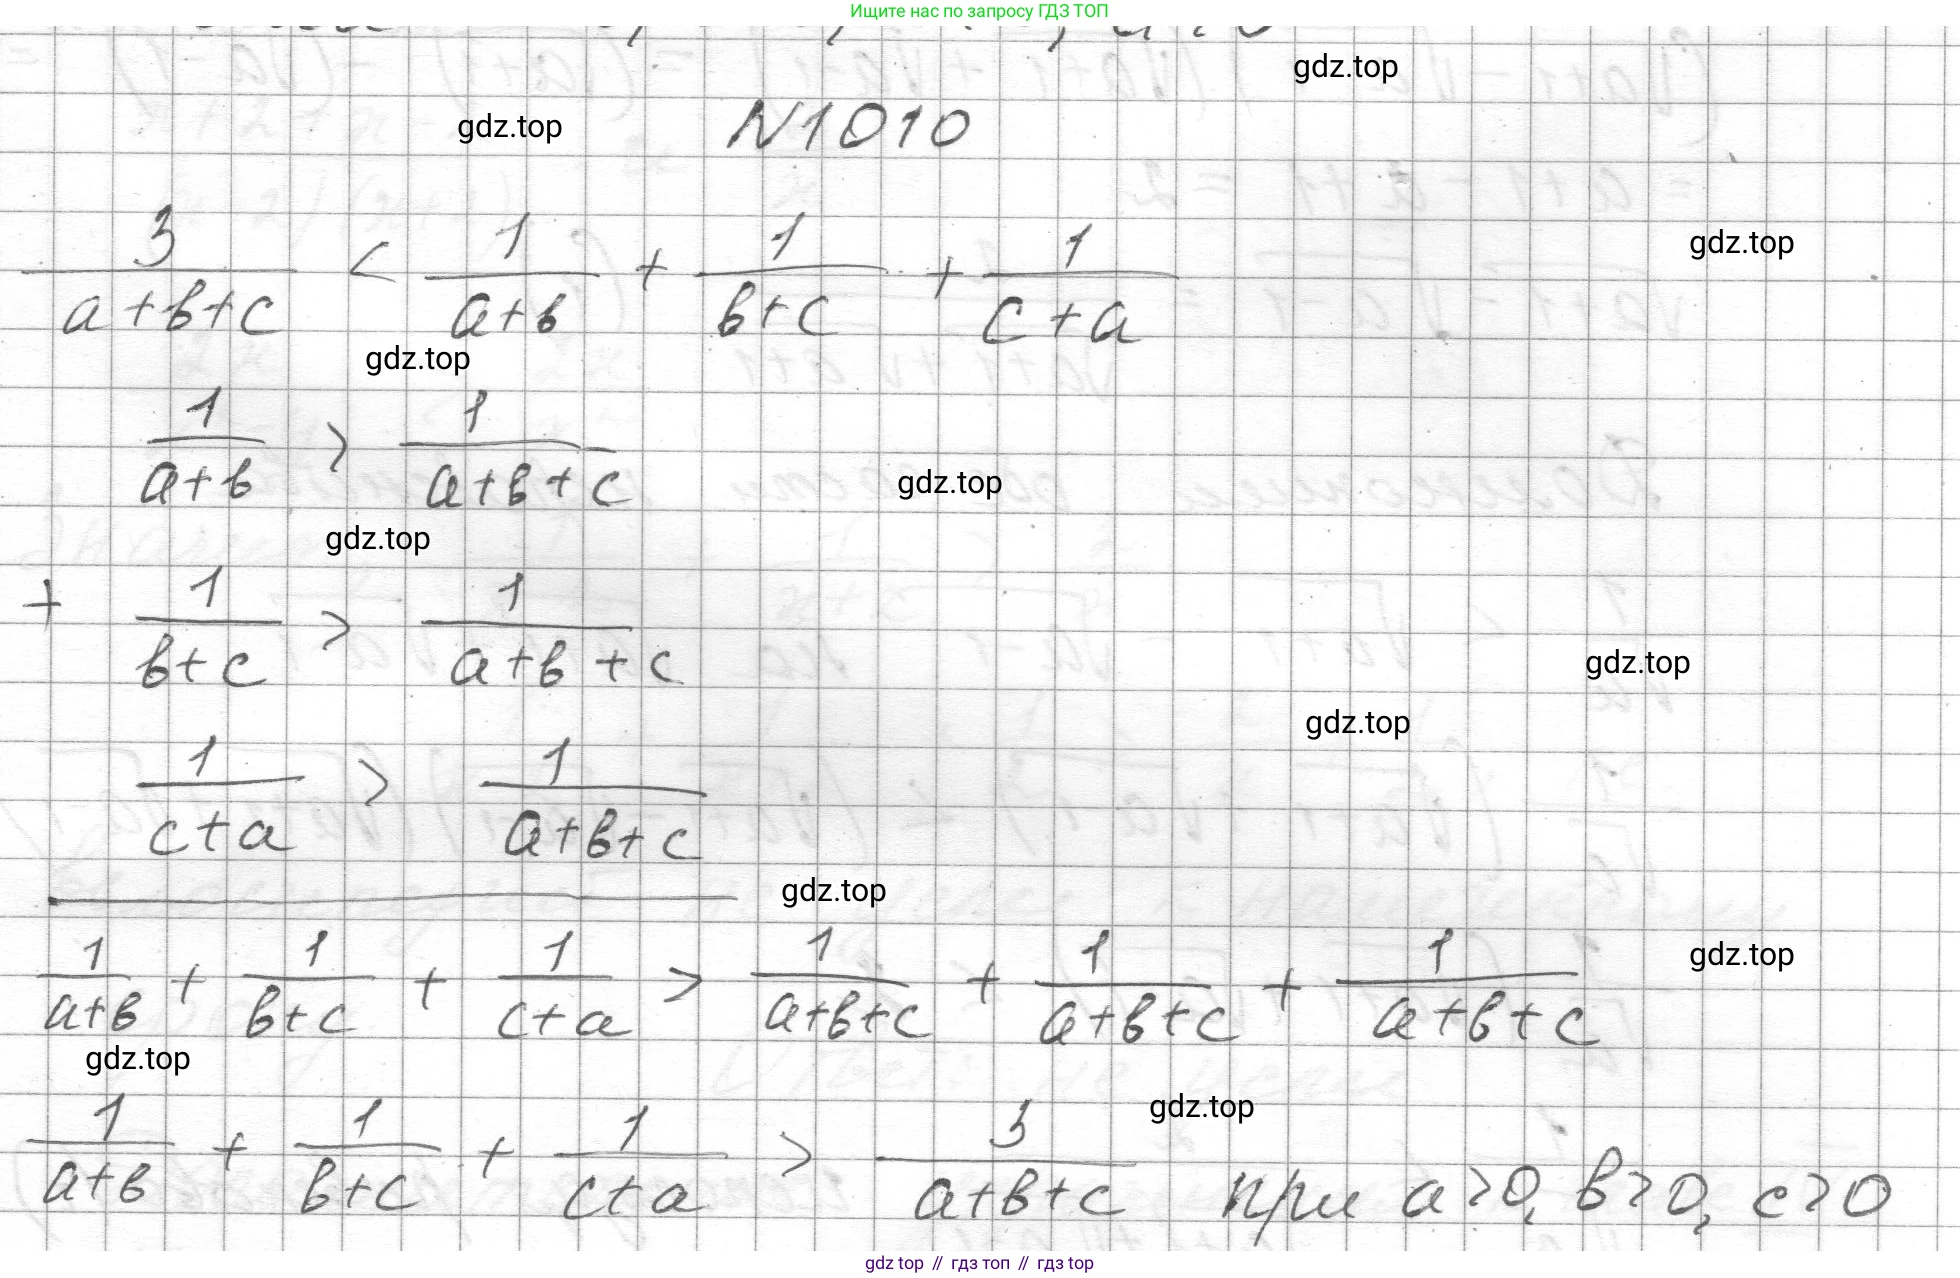 Ищите нас по запросу ГДЗ ТОП
gdz.top
gdz.top
N1010
3/(a+b+c) < 1/(a+b) + 1/(b+c) + 1/(c+a)
gdz.top
gdz.top
1/(a+b) > 1/(a+b+c)
gdz.top
gdz.top
+ 1/(b+c) > 1/(a+b+c)
gdz.top
gdz.top
1/(c+a) > 1/(a+b+c)
gdz.top
1/(a+b) + 1/(b+c) + 1/(c+a) > 1/(a+b+c) + 1/(a+b+c) + 1/(a+b+c)
gdz.top
gdz.top
gdz.top
1/(a+b) + 1/(b+c) + 1/(c+a) > 3/(a+b+c) при a>0, b>0, c>0
gdz top // гдз топ // гдз top